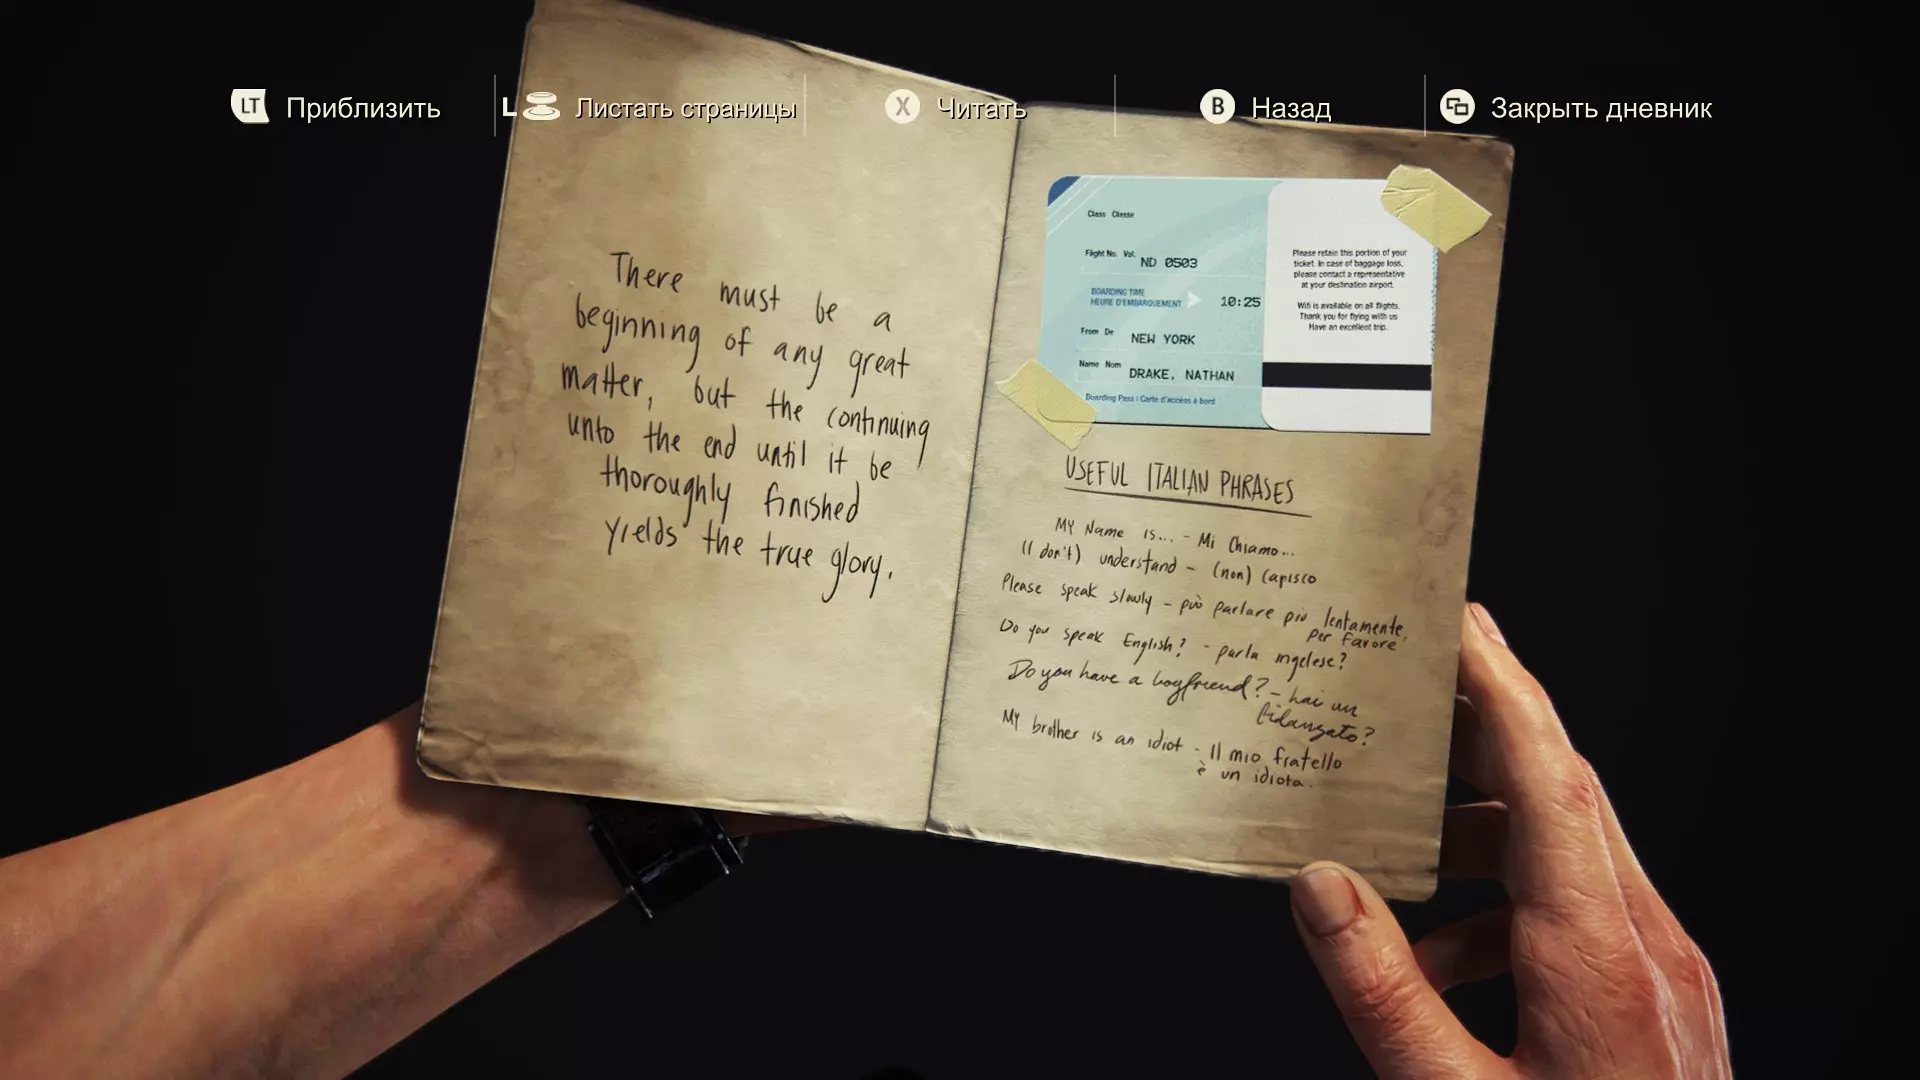 LT Приблизить
L Листать страницы
X Читать
B Назад
Закрыть дневник
There must be a
beginning of any great
matter, but the continuing
unto the end until it be
thoroughly finished
yields the true glory.
Class Classe
Flight No. Vol. ND 0503
BOARDING TIME
HEURE D'EMBARQUEMENT 10:25
From De NEW YORK
Name Nom DRAKE, NATHAN
Boarding Pass | Carte d'accès à bord
Please retain this portion of your
ticket. In case of baggage loss,
please contact a representative
at your destination airport.
Wifi is available on all flights.
Thank you for flying with us
Have an excellent trip.
USEFUL ITALIAN PHRASES
MY Name is... - Mi Chiamo...
(I don't) understand - (non) capisco
Please speak slowly - può parlare più lentamente,
per favore
Do you speak English? - parla inglese?
Do you have a boyfriend? - hai un
fidanzato?
MY brother is an idiot - Il mio fratello
è un idiota.